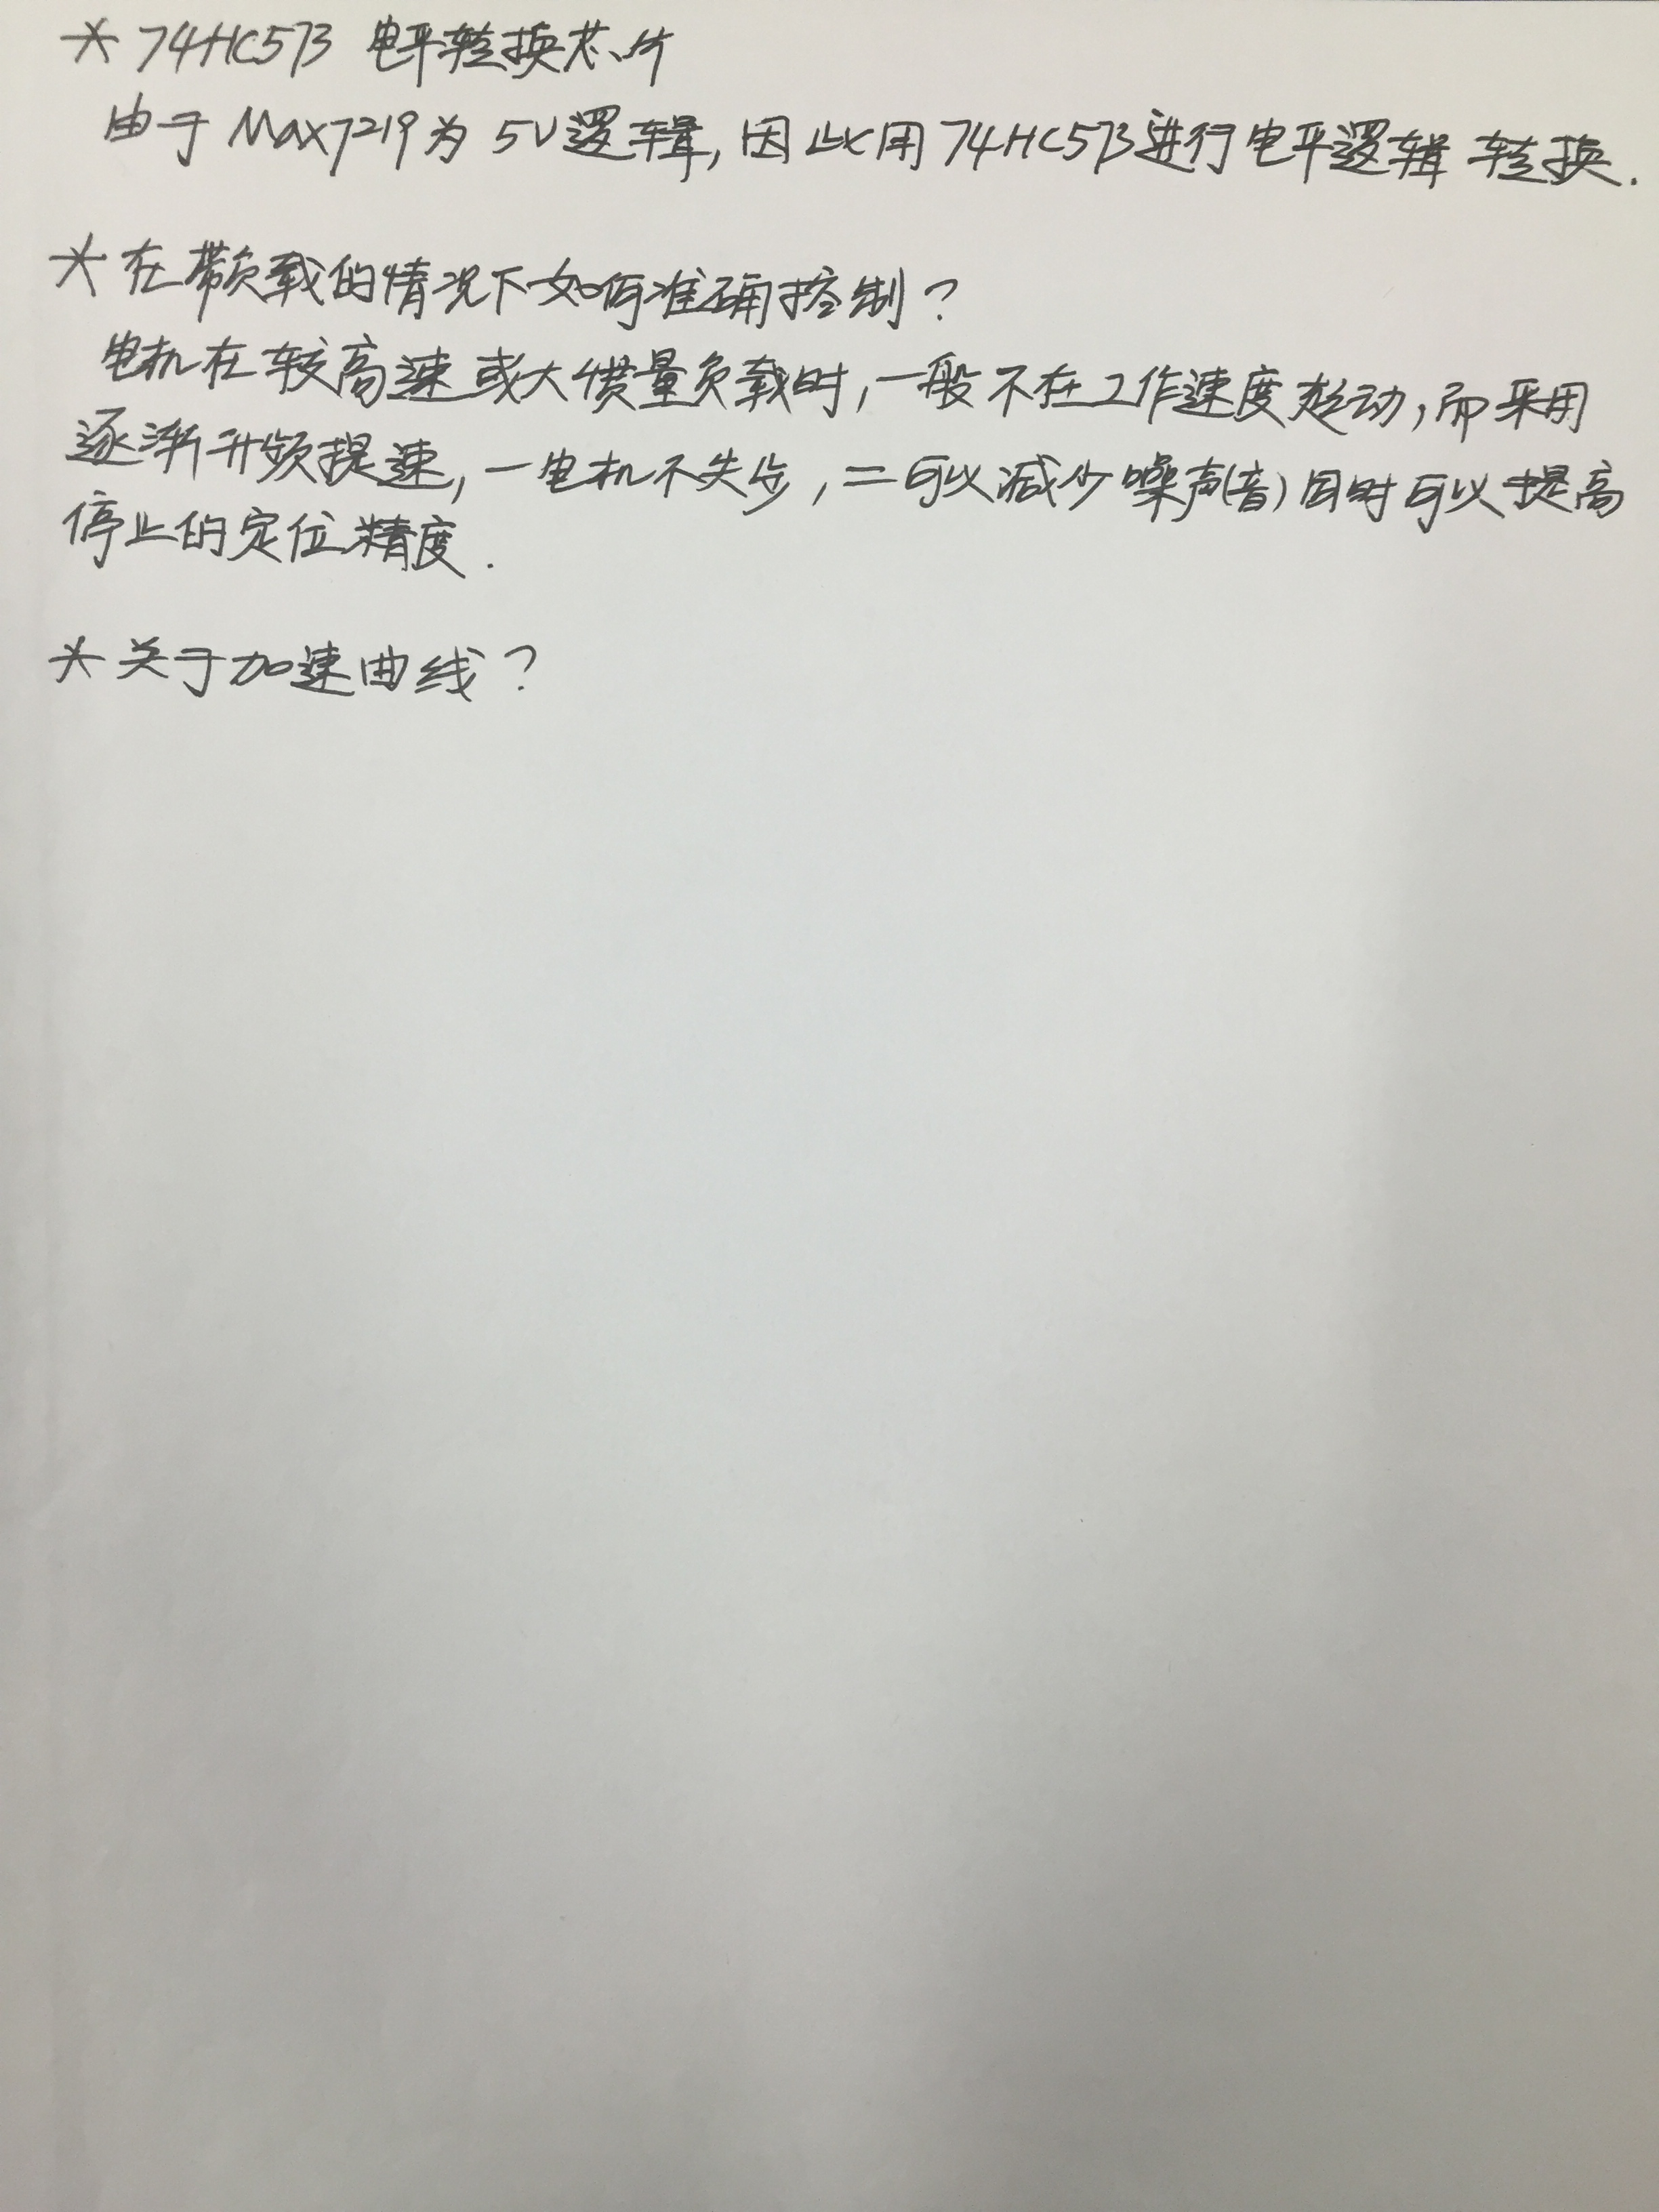 * 74HC573 电平转换芯片
由于 Max7219 为 5V逻辑,因此用74HC573进行电平逻辑 转换.
* 在带负载的情况下如何准确控制?
电机在较高速或大惯量负载时,一般不在工作速度起动,而采用
逐渐升频提速,一电机不失步,二可以减少噪声(音)同时可以提高
停止的定位精度.
* 关于加速曲线?